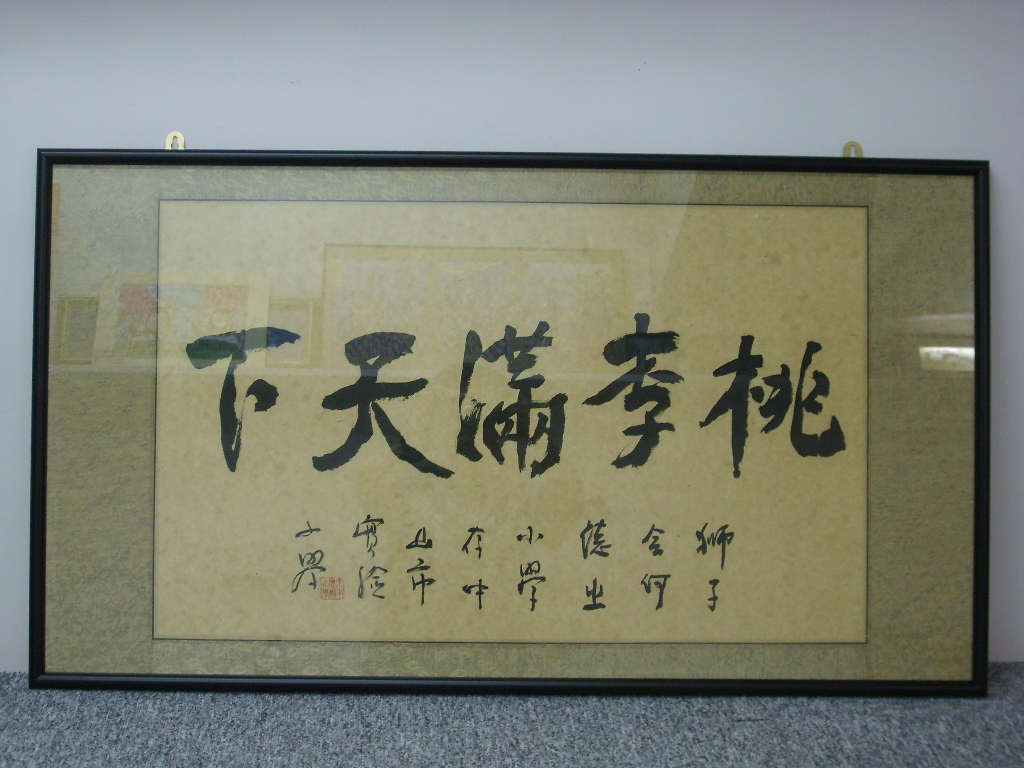 桃李滿天下
獅子
會何
德心
小學
存中
山市
實驗
小學